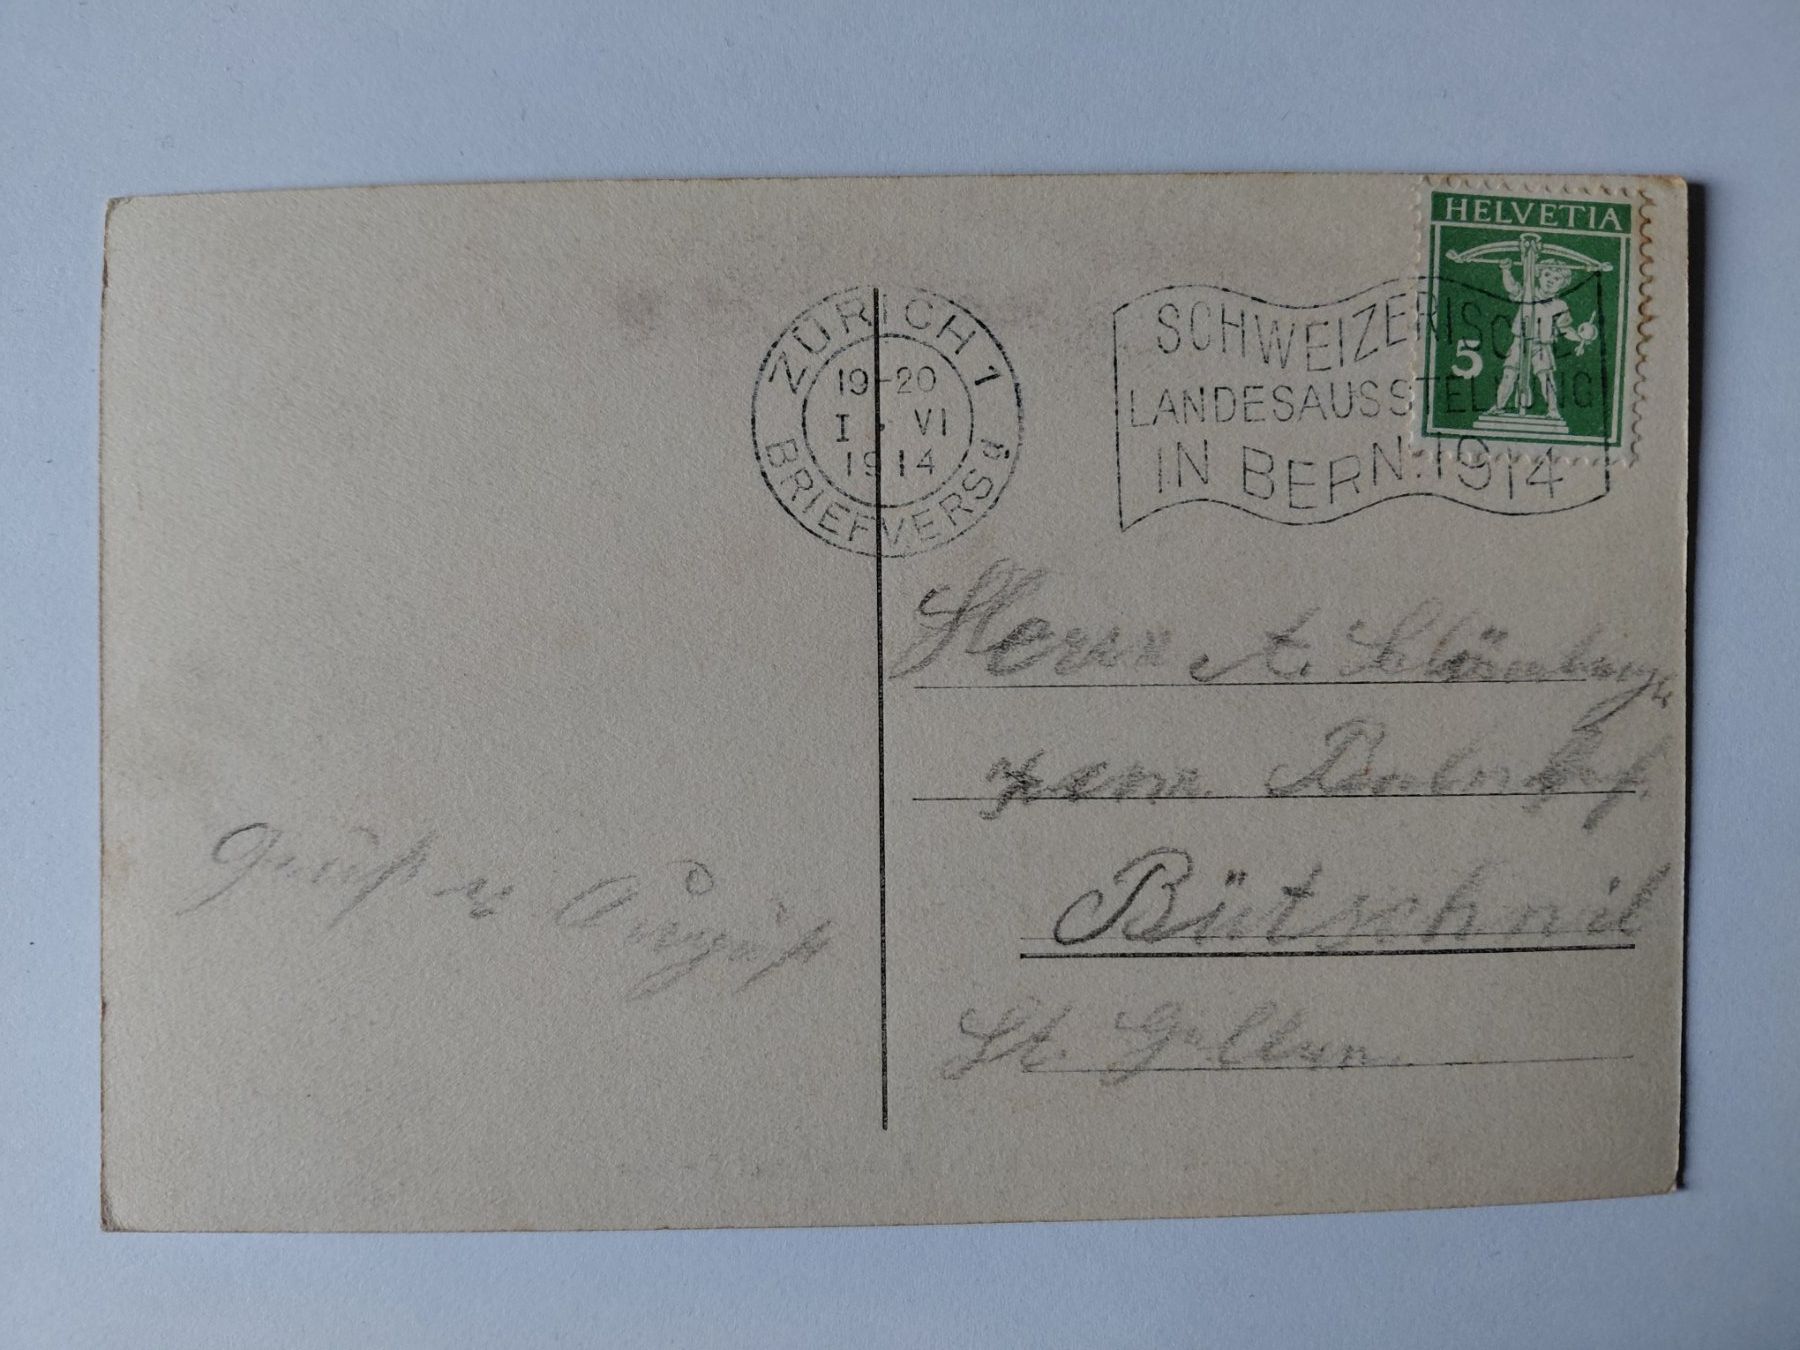 HELVETIA
5
ZÜRICH 1
19-20
I. VI
1914
BRIEFVERSd.
SCHWEIZERISCHE
LANDESAUSSTELLUNG
IN BERN. 1914
Herrn A.
zum Bahnhof.
Bütschwil
St. Gallen.
Gruss August